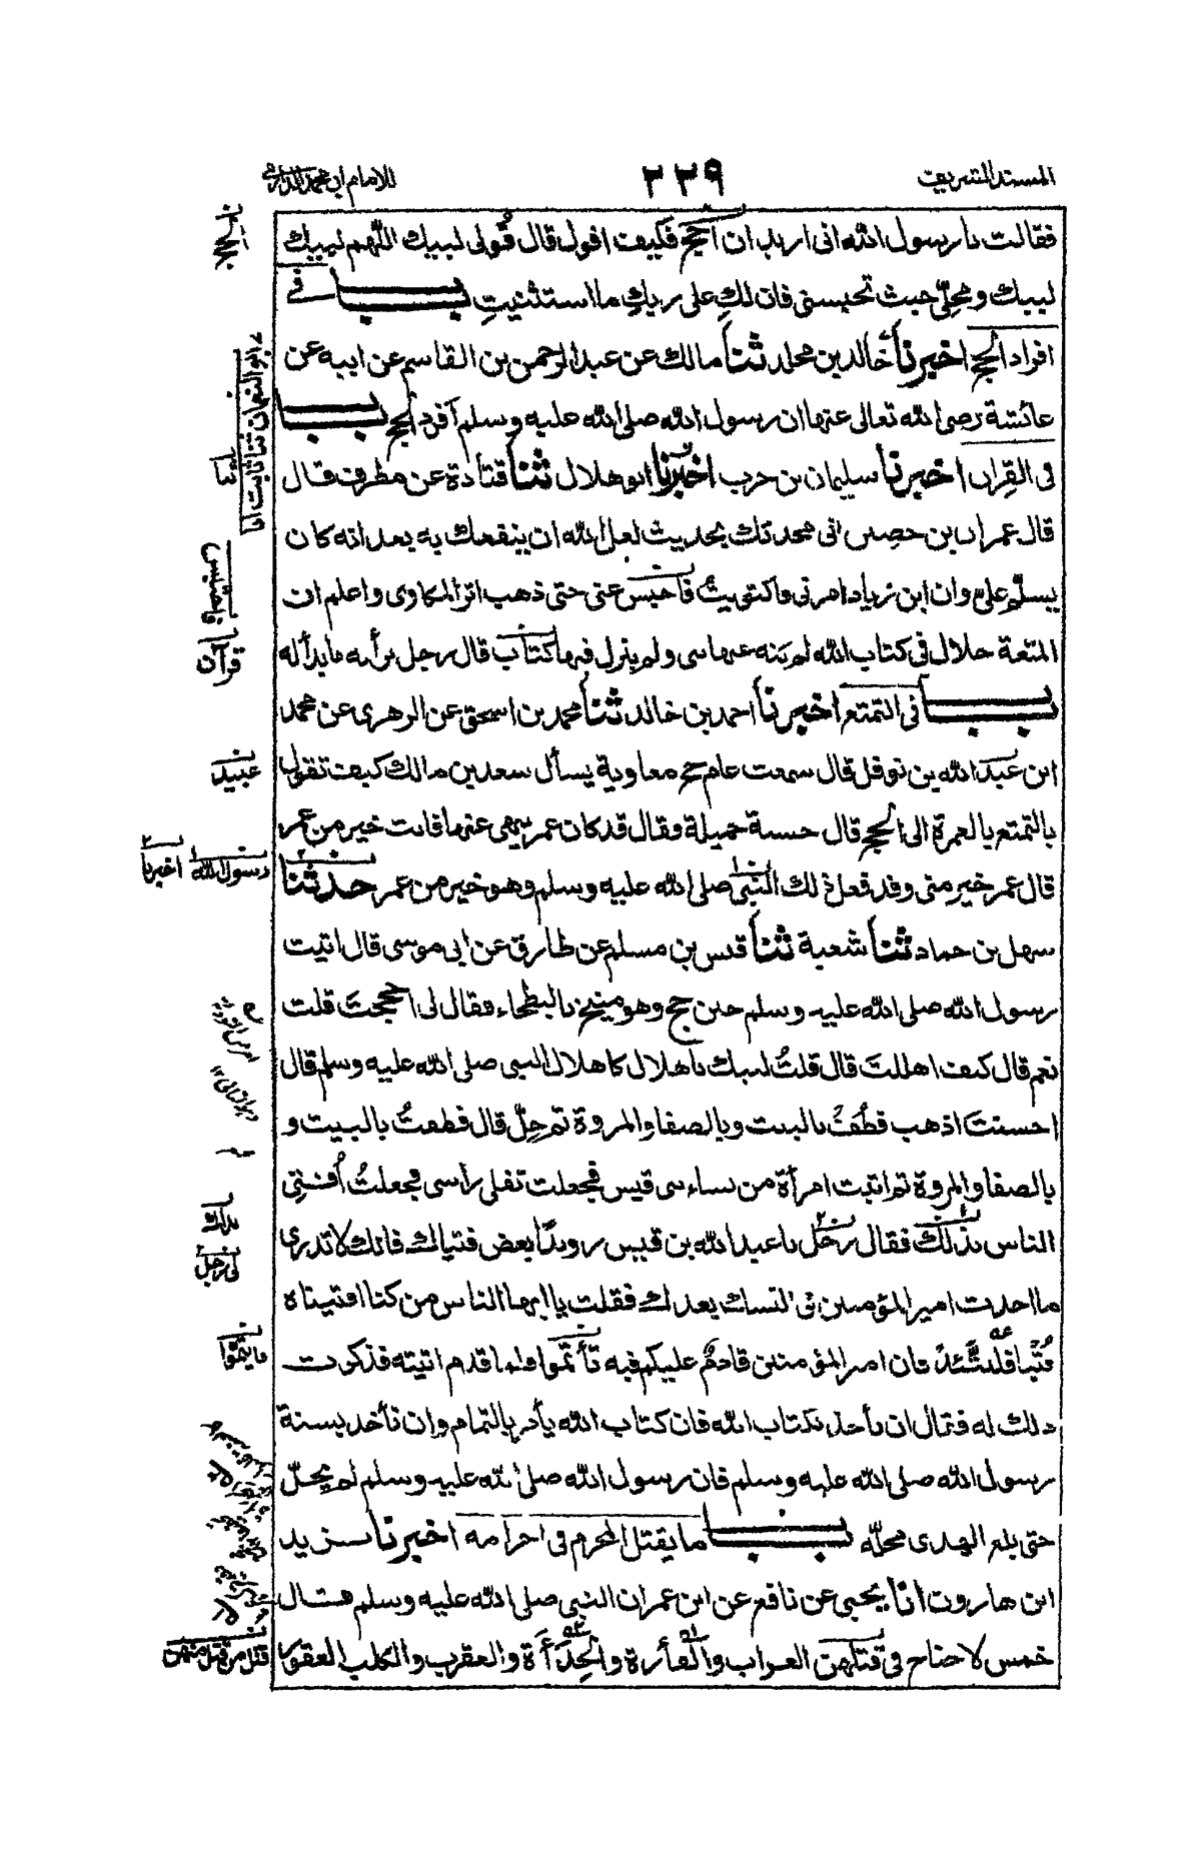 المسند الشريف
٢٢٩
للامام ابي محمد الدارمي
فقالت يا رسول الله انى اريد ان احج فكيف اقول قال قُولى لبيك اللّهم لبيك
لبيك ومحلّى حيث تحبسنى فان لكِ على ربكِ ما استثنيتِ باب فى
افراد الحج اخبرنا خالد بن مخلد ثنا مالك عن عبد الرحمن بن القاسم عن ابيه عن
عائشة رضى الله تعالى عنها ان رسول الله صلى الله عليه وسلم افرد الحج باب
فى القِران اخبرنا سليمان بن حرب اخبرنا ابو هلال ثنا قتادة عن مطرف قال
قال عمران بن حصين انى محدثك بحديث لعل الله ان ينفعك به بعد انه كان
يسلّم علىّ وان ابن زياد امرنى فاكتويت فاحبس عنى حتى ذهب اثر المكاوى واعلم ان
المتعة حلال فى كتاب الله لم ينه عنها نبى ولم ينزل فيها كتاب قال رجل برأيه ما بدأ له
باب فى التمتع اخبرنا احمد بن خالد ثنا محمد بن اسحق عن الزهرى عن محمد
ابن عبد الله بن نوفل قال سمعت عام حج معاوية يسأل سعد بن مالك كيف تقول
بالتمتع بالعمرة الى الحج قال حسنة جميلة فقال قد كان عمر ينهى عنها فانت خير من عمر
قال عمر خير منى وقد فعل ذلك النبى صلى الله عليه وسلم وهو خير من عمر حدثنا
سهل بن حماد ثنا شعبة ثنا قيس بن مسلم عن طارق عن ابى موسى قال اتيت
رسول الله صلى الله عليه وسلم حين حج وهو منيخ بالبطحاء فقال لى احججتَ قلت
نعم قال كيف اهللتَ قال قلتُ لبيك باهلال كاهلال النبى صلى الله عليه وسلم قال
احسنتَ اذهب فطُفْ بالبيت وبالصفا والمروة ثم حِلّ قال فطفتُ بالبيت و
بالصفا والمروة ثم اتيت امرأة من نساء بنى قيس فجعلت تفلى رأسى فجعلتُ اُفتى
الناس بذلك فقال رجل يا عبد الله بن قيس رويدًا بعض فتياك فانك لا تدرى
ما احدث امير المؤمنين فى النسك بعدك فقلت يا ايها الناس من كنا افتيناه
فُتيا فليتّئد فان امير المؤمنين قادم عليكم فبه تأتموا فلما قدم اتيته فذكرت
ذلك له فقال ان نأخذ بكتاب الله فان كتاب الله يأمر بالتمام وان نأخذ بسنة
رسول الله صلى الله عليه وسلم فان رسول الله صلى الله عليه وسلم لم يحلّ
حتى بلغ الهدى محلّه باب ما يقتل المحرم فى احرامه اخبرنا يزيد
ابن هارون انا يحيى عن نافع عن ابن عمر ان النبى صلى الله عليه وسلم قال
خمس لا جناح فى قتلهن الغراب والفأرة والحِدَأة والعقرب والكلب العقور
الحج
ابو النعمان ثنا ثابت انا
ثنا
فاحتبس
قرآن
عبيد
رسول الله
اخبرنا
بذاك
لى رجل
فايتمّوا
قتل من قتل منهن